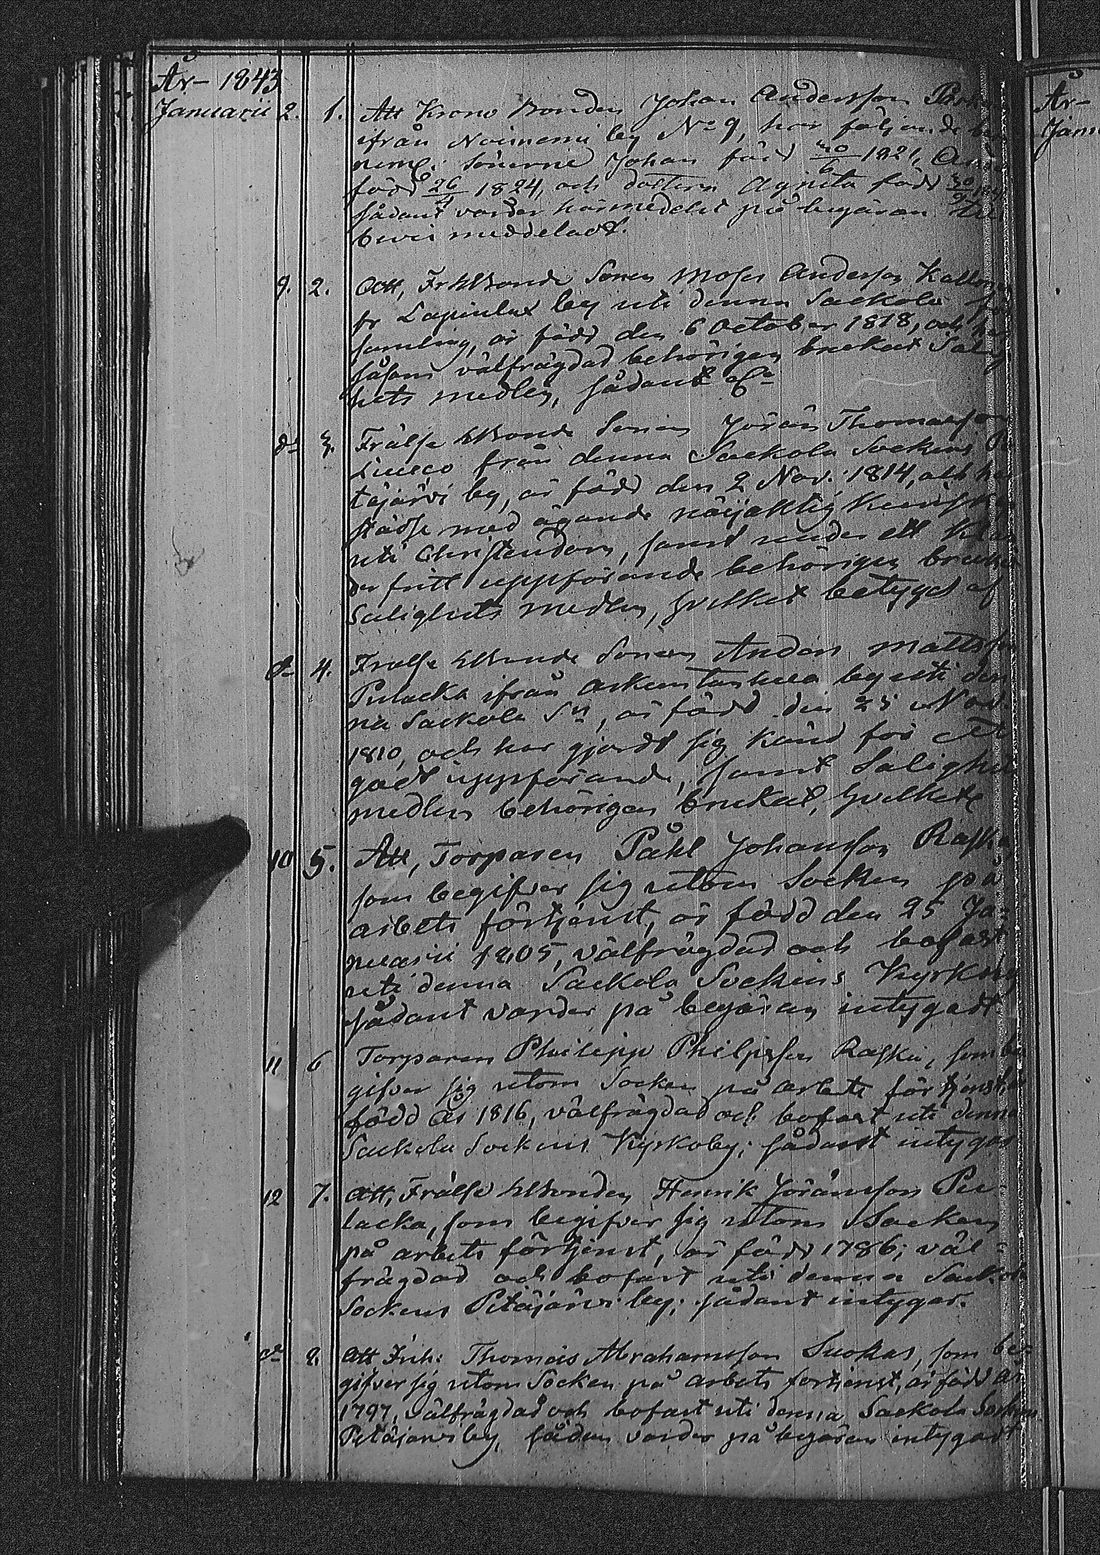 År 1843
Januarii 2. 1. Att Krono Bonden Johan Andersson
ifrån Noisniemi by No 9, har följande
neml: sönerne Johan född 30/6 1821,
född 26/4 1824, och dottern Agneta född 30/9
sådant varder härmedelst på begäran till
bevis meddeladt.
9. 2. Att, Frälse Bonde Sonen Moses Andersson
fr Lapinlax by uti denna Sackola för-
samling, är född den 6 October 1818, och
såsom välfrägdad behörigen brukat Salig
hets medlen, sådant &c
do 3. Frälse Bonde Sonen Jöran Thomasson
från denna Sackola Sockens Pe
täjärvi by, är född den 2 Nov: 1814, och
med ägande nöjaktig kunskap
uti Christendom, samt under ett klan
der fritt uppförande behörigen brukat
Salighets medlen, hvilket betygas af
do 4. Frälse Bonde Sonen Anders Mattsson
Pulacka ifrån by uti den
na Sackola Sn, är född den 25 Nov.
1810, och har gjordt sig känd för ett
godt uppförande, samt Salighets
medlen behörigen brukat, hvilket
10 5. Att, Torparen Påhl Johansson Raski
som begifver sig utom Socken på
arbets förtjenst, är född den 25 Ja-
nuarii 1805, välfrägdad och bofast
uti denna Sackola Sockens Kyrkoby
sådant varder på begäran intygadt
11 6 Torparen Philipp Philipsson Raski, som be
gifver sig utom Socken på arbets förtjenst, är
född år 1816, välfrägdad och bofast uti denna
Sackola Sockens Kyrkoby; sådant intygas
12 7. Att, Frälse Bonden Henrik Jöransson Pu
lacka, som begifver sig utom Socken
på arbets förtjenst, är född 1786; väl-
frägdad och bofast uti denna Sackola
Sockens Petäjärvi by; sådant intygas.
do 8. Att Thomas Abrahamsson Suokas, som be
gifver sig utom Socken på arbets förtjenst, är född år
1797, välfrägdad och bofast uti denna Sackola Sockens
Petäjärvi by, sådant varder på begäran intygadt
År-